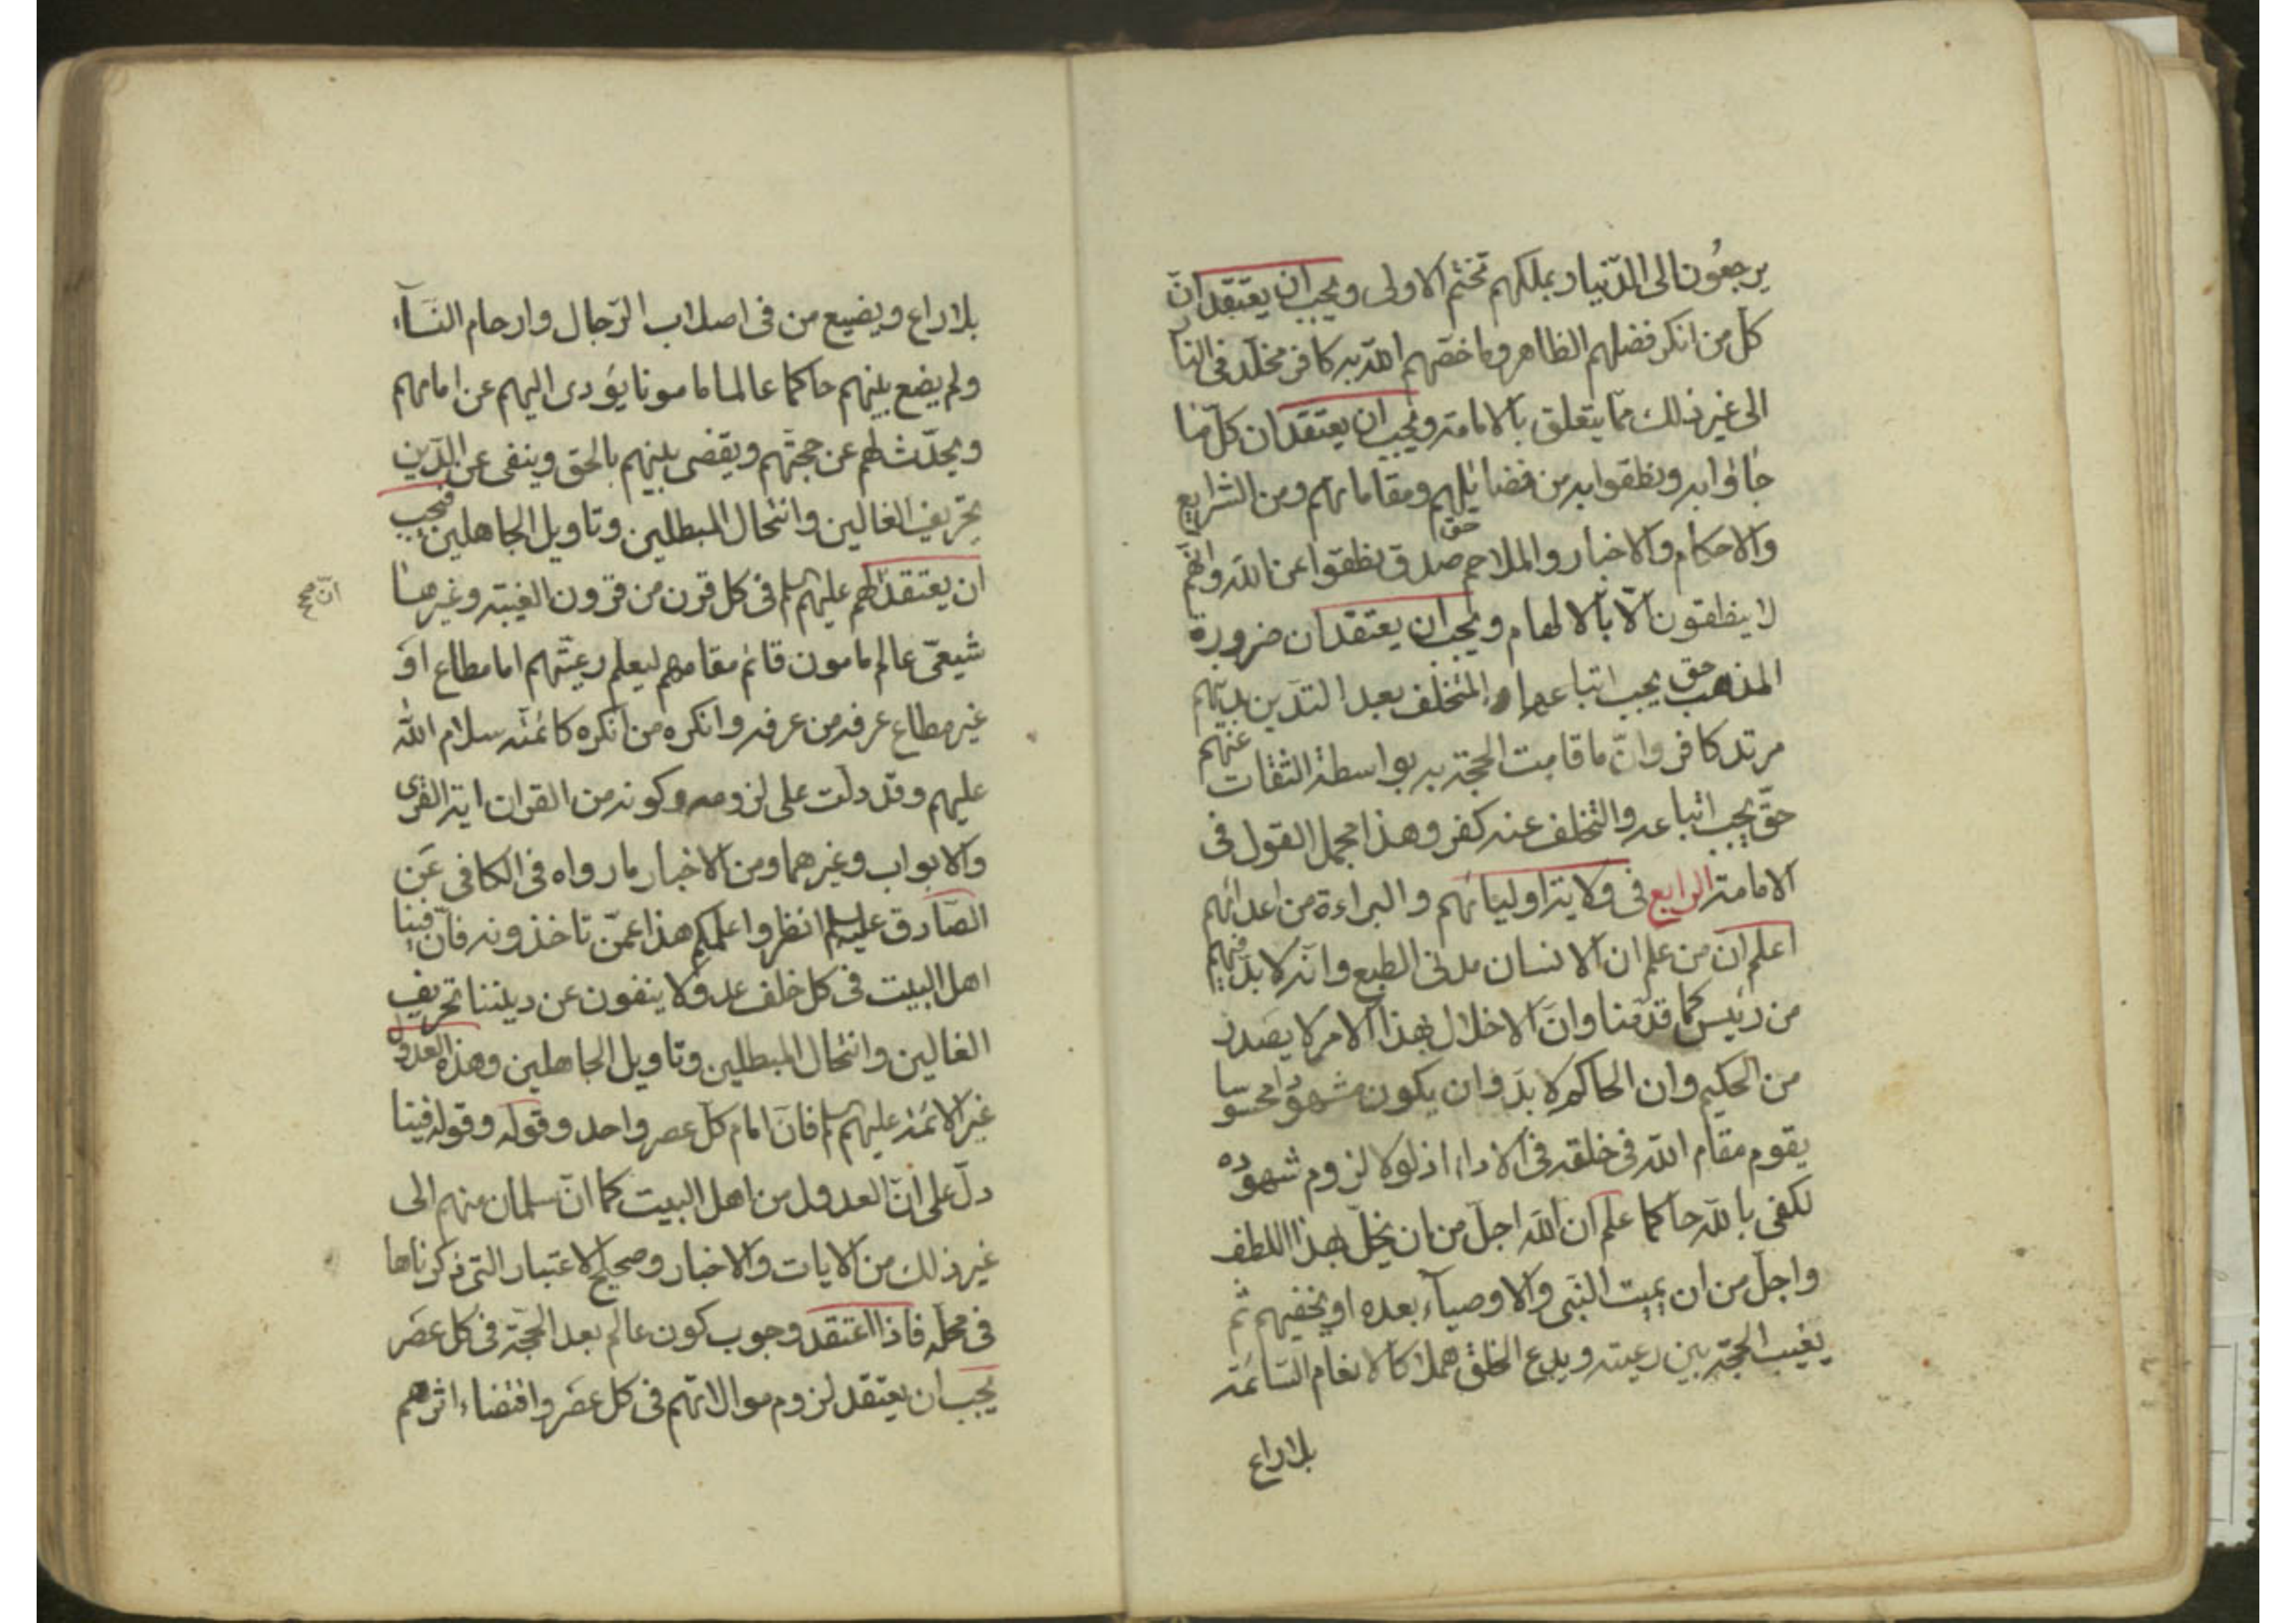 يرجعون الى الدّنيا وبملكهم تختم الاولى ويجب ان يعتقد انّ
كلّ من انكر فضلهم الظاهر وما خصّهم اللّه به كافر مخلّد فى النار
الى غير ذلك ممّا يتعلق بالامامة ويجب ان يعتقد ان كلّ ما
جاؤا به ونطقوا به من فضائلهم ومقاماتهم ومن الشرايع
والاحكام والاخبار والملاحم حق صدق نطقوا عن اللّه وانّهم
لا ينطقون الّا بالالهام ويجب ان يعتقد ان ضرورة
المذهب حق يجب اتباعها والمتخلف بعد التدين بدينهم
مرتد كافر وانّ ما قامت الحجة به بواسطة الثقات عنهم
حقّ يجب اتباعه والتخلف عنه كفر وهذا مجمل القول فى
الامامة الرابع فى ولاية اوليائهم والبراءة من اعدائهم
اعلم انّ من علم ان الانسان مدنى الطبع وانّه لا بدّ فيهم
من رئيس كما قدمنا وانّ الاخلال بهذا الامر لا يصدر
من الحكيم وان الحاكم لا بدّ وان يكون مشهودا محسوسا
يقوم مقام اللّه فى خلقه فى الاداء اذ لولا لزوم شهوده
لكفى باللّه حاكما علم انّ اللّه اجلّ من ان يخلّ بهذا اللطف
واجلّ من ان يميت النبى والاوصياء بعده او يخفيهم ثم
يغيب الحجة بين رعيته ويدع الخلق هملا كالانعام السائمة
بلا راع
بلا راع ويضيع من فى اصلاب الرّجال وارحام النسآء
ولم يضع بينهم حاكما عالما مامونا يؤدى اليهم عن امامهم
ويحدّث لهم عن حجتهم ويقضى بينهم بالحق وينفى عن الدّين
تحريف الغالين وانتحال المبطلين وتاويل الجاهلين فيجب
ان يعتقد لهم عليهم السلم فى كل قرن من قرون الغيبة وغيرها
انّ صح
شيعىّ عالم مامون قائم مقامهم ليعلم رعيّتهم اما مطاع او
غير مطاع عرفه من عرفه وانكره من انكره كائمّته سلام اللّه
عليهم وقد دلت على لزومه وكونه من القران اية القرى
والابواب وغيرهما ومن الاخبار ما رواه فى الكافى عن
الصّادق عليه السلم انظروا علمكم هذا عمّن تاخذونه فانّ فينا
اهل البيت فى كل خلف عدولا ينفون عن ديننا تحريف
الغالين وانتحال المبطلين وتاويل الجاهلين وهذه العدول
غير الائمة عليهم السلم فانّ امام كلّ عصر واحد وقوله وقوله فينا
دلّ على انّ العدول من اهل البيت كما انّ سلمان منهم الى
غير ذلك من الايات والاخبار وصحيح الاعتبار التى ذكرناها
فى محله فاذا اعتقد وجوب كون عالم بعد الحجّة فى كل عصر
يجب ان يعتقد لزوم موالاتهم فى كل عصر واقتضاء اثرهم